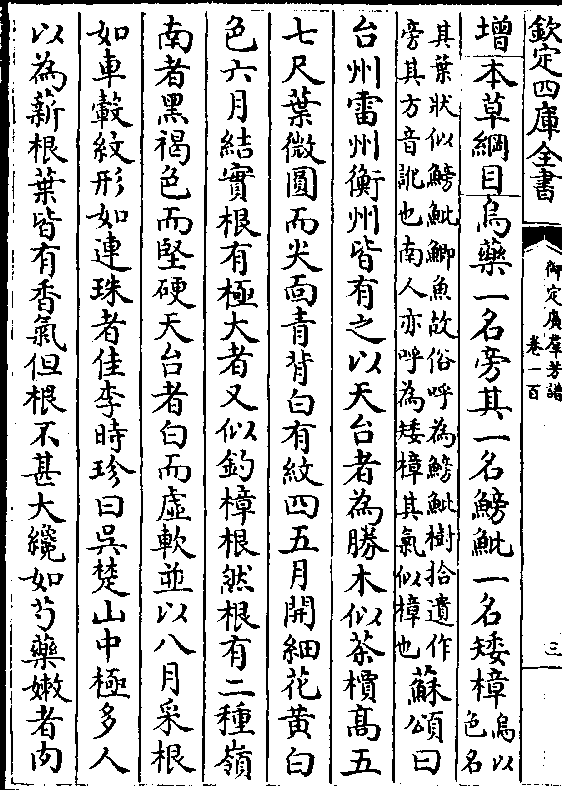 欽定四庫全書
御定廣羣芳譜
卷一百
三
增本草綱目烏藥一名旁其一名鰟魮一名矮樟
烏以
色名
其葉狀似鰟魮鯽魚故俗呼為鰟魮樹拾遺作
旁其方音訛也南人亦呼為矮樟其氣似樟也
蘇頌曰
台州雷州衡州皆有之以天台者為勝木似茶檟高五
七尺葉微圓而尖靣青背白有紋四五月開細花黃白
色六月結實根有極大者又似釣樟根然根有二種嶺
南者黑褐色而堅硬天台者白而虛軟並以八月采根
如車轂紋形如連珠者佳李時珍曰吳楚山中極多人
以為薪根葉皆有香氣但根不甚大纔如芍藥嫩者肉